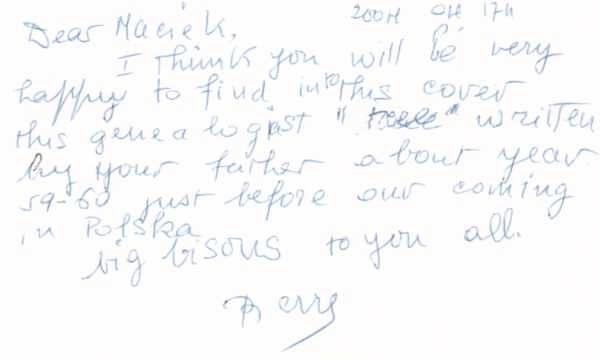 Dear Maciek,
I think you will be very
happy to find into this cover
this genealogist "tree" written
by your father about year
59-60 just before our coming
in Polska
big bisous to you all.